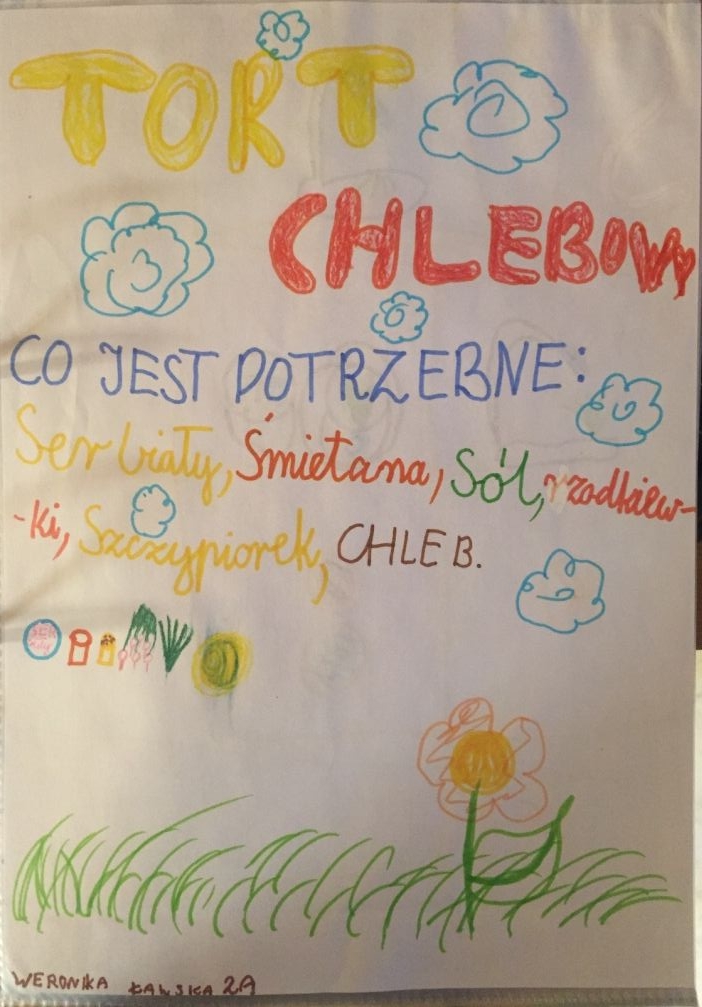 TORT
CHLEBOWY
CO JEST POTRZEBNE:
Ser biały, Śmietana, Sól, rzodkiew-
-ki, Szczypiorek, CHLEB.
SER
WERONIKA ŁAWSKA 2A